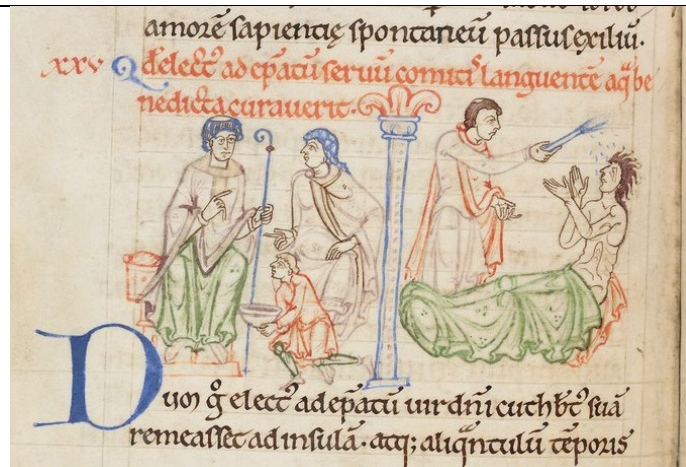 amorẽ sapientię spontaneũ passus exiliũ.
xxv Qđ elect᷒ ad ep̃atũ seruũ comitis languentẽ aq̃ be
nedicta curauerit.
Dum g̊ elect᷒ ad ep̃atũ uir dñi cuthb̃t᷒ suã
remeasset ad insulã. atq; aliq̃ntulũ tẽporis